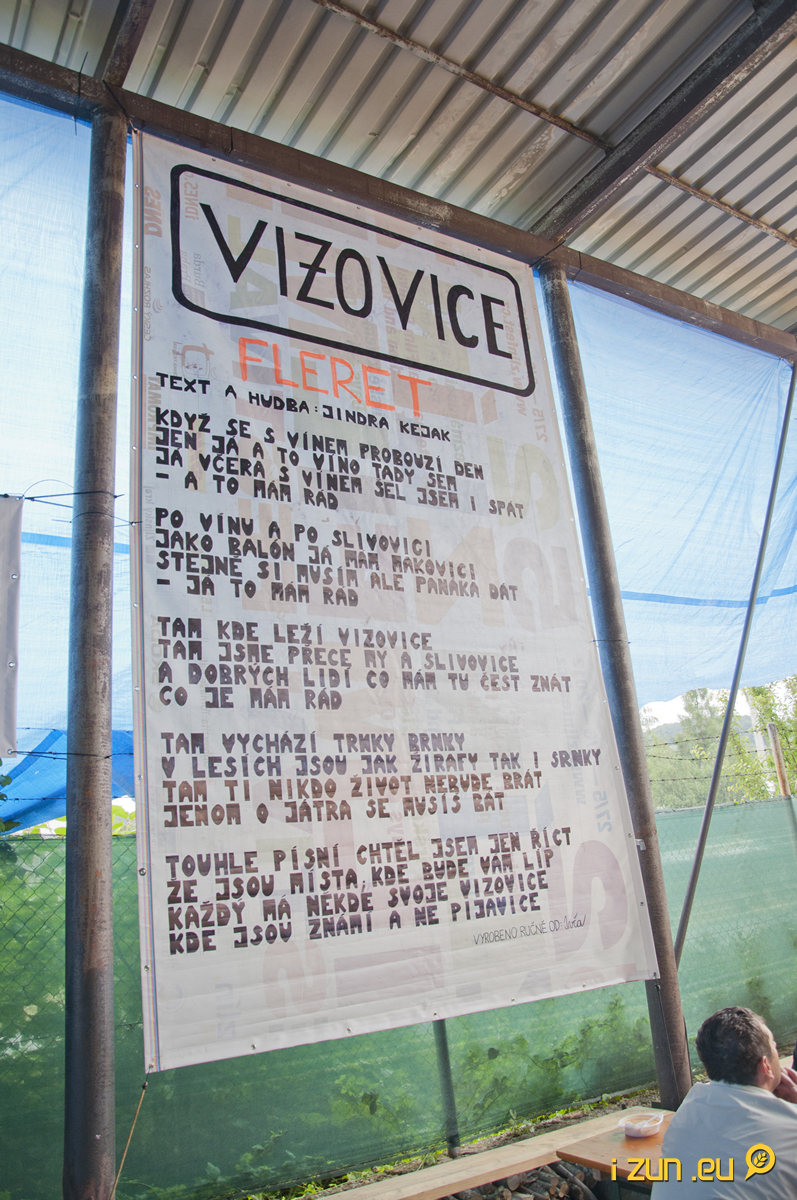 VIZOVICE
FLERET
TEXT A HUDBA: JINDRA KEJAK
KDYŽ SE S VÍNEM PROBOUZÍ DEN
JEN JÁ A TO VÍNO TADY SEM
JÁ VČERA S VÍNEM ŠEL JSEM I SPÁT
- A TO MÁM RÁD
PO VÍNU A PO SLIVOVICI
JAKO BALÓN JÁ MÁM MAKOVICI
STEJNĚ SI MUSÍM ALE PANÁKA DÁT
- JÁ TO MÁM RÁD
TAM KDE LEŽÍ VIZOVICE
TAM JSME PŘECE MY A SLIVOVICE
A DOBRÝCH LIDÍ CO MÁM TU ČEST ZNÁT
CO JE MÁM RÁD
TAM VYCHÁZÍ TRNKY BRNKY
V LESÍCH JSOU JAK ŽIRAFY TAK I SRNKY
TAM TI NIKDO ŽIVOT NEBUDE BRÁT
JENOM O JÁTRA SE MUSÍŠ BÁT
TOUHLE PÍSNÍ CHTĚL JSEM JEN ŘÍCT
ŽE JSOU MÍSTA, KDE BUDE VÁM LÍP
KAŽDÝ MÁ NĚKDE SVOJE VIZOVICE
KDE JSOU ZNÁMÍ A NE PIJAVICE
VYROBENO RUČNĚ OD:
DNES
27/5
27/5
i zun .eu